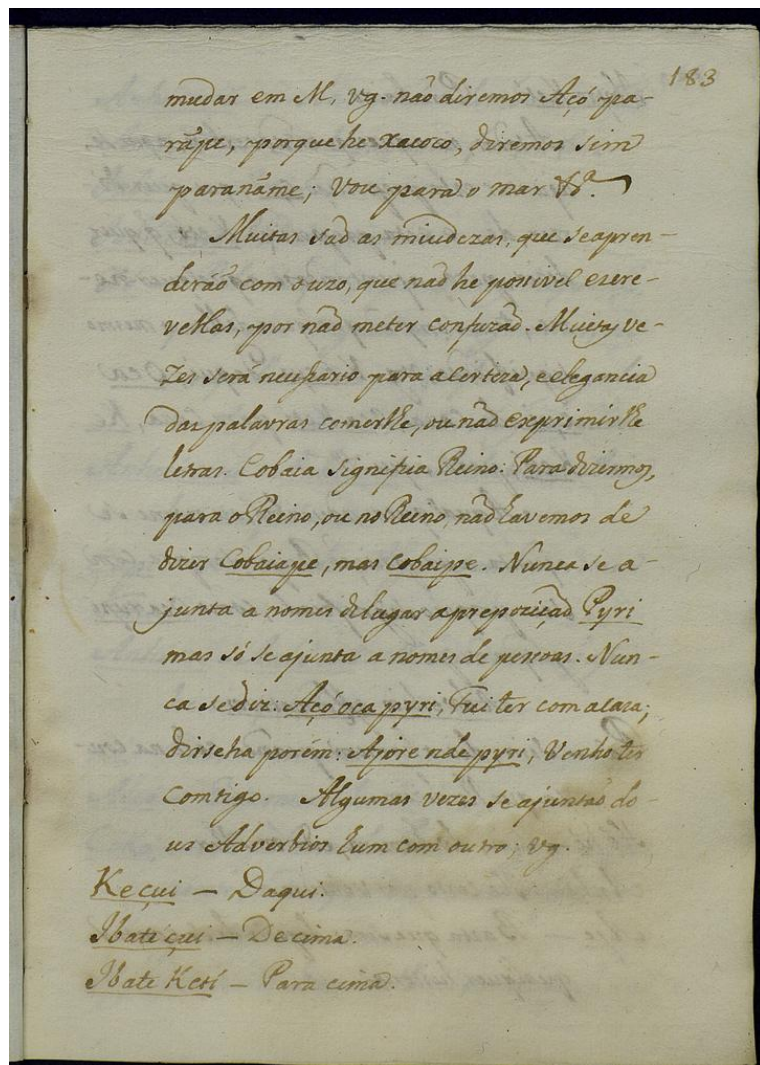 183
mudar em M, vg. não diremos Açó pa-
rãpe, porque he xacoco, diremos sim
paranãme; Vou para o mar &ª.
Muitas saõ as miudezas, que se apren-
deráõ com o uzo, que naõ he possivel escre-
vellas, por naõ meter confuzaõ. Muitas ve-
zes será necessario para a certeza, e elegancia
das palavras comerlhe, ou naõ exprimirlhe
letras. Cobaia significa Reino: Para dizermos,
para o Reino, ou no Reino, naõ havemos de
dizer Cobaiape, mas Cobaipe. Nunca se a-
junta a nomes de lugar a prepozição Pyri
mas só se ajunta a nomes de pessoas. Nun-
ca se diz: Açó oca pyri, Fui ter com a caza;
dirseha porém: Ajore nde pyri, Venho ter
comtigo. Algumas vezes se ajuntaõ do-
us Adverbios hum com outro; vg.
Ke çui — Daqui.
Ibaté çui — De cima.
Ibate Ketí — Para cima.